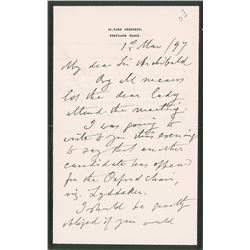 10, PARK CRESCENT,
PORTLAND PLACE.
1st Mar/97
My dear Sir Archibald
By all means
let the dear lady
attend the meeting.
I was going to
write to you this evening
to say that another
candidate has appeared
for the Oxford Chair,
viz. Lyddeker.
I should be greatly
obliged if you would